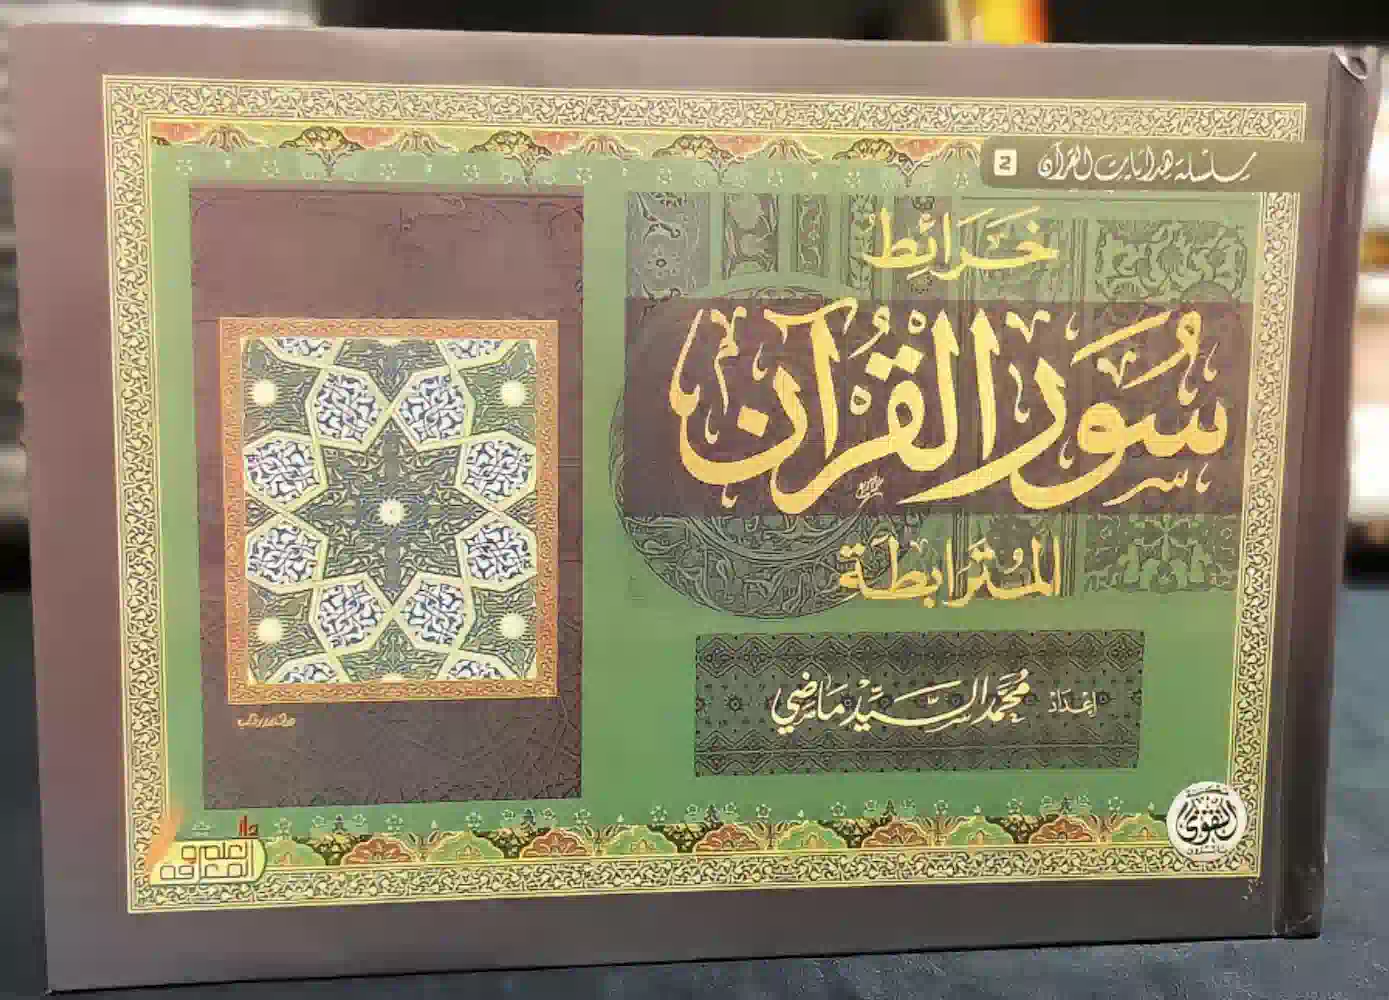 سلسلة هدايات القرآن 2
خَرَائِط
سُوَر القُرآن
المُتَرابِطَة
إعْدَاد مُحَمَّد السَّيِّد مَاضِي
دار
العلم و
المعرفة
التقوى